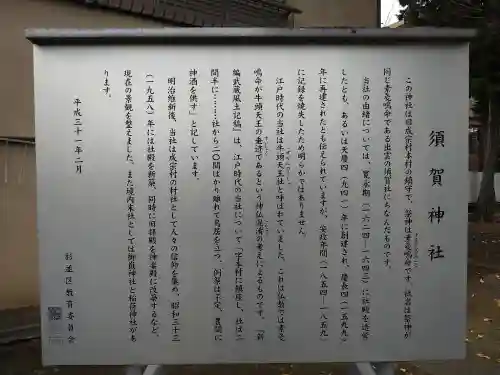 須賀神社
この神社は旧成宗村本村の鎮守で、祭神は素戔嗚命です。社号は祭神が
同じ素戔嗚命である出雲の須賀社にちなんだものです。
当社の由緒については、寛永期(一六二四―一六四三)に社殿を造営
したとも、あるいは天慶四(九四一)年に創建され、慶長四(一五九九)
年に再建されたとも伝えられていますが、安政年間(一八五四―一八五九)
に記録を焼失したため明らかではありません。
江戸時代の当社は牛頭天王社と呼ばれていました。これは仏教では素戔
嗚命が牛頭天王の垂迹であるという神仏混淆の考えによるものです。『新
編武蔵風土記稿』は、江戸時代の当社について「字本村に鎮座し、社は二
間半に……社から二〇間ばかり離れて鳥居を立つ、例祭は不定、里民に
神酒を供す」と記しています。
明治維新後、当社は成宗村の村社として人々の信仰を集め、昭和三十三
(一九五八)年には社殿を新築、同時に旧拝殿を神楽殿に改築するなど、
現在の景観を整えました。また境内末社としては御嶽神社と稲荷神社があ
ります。
平成三十一年二月
杉並区教育委員会